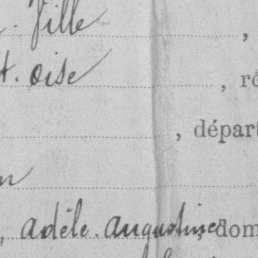 . Ville ,
t. oise , ré
, départ
n
, adèle. augustine, dom